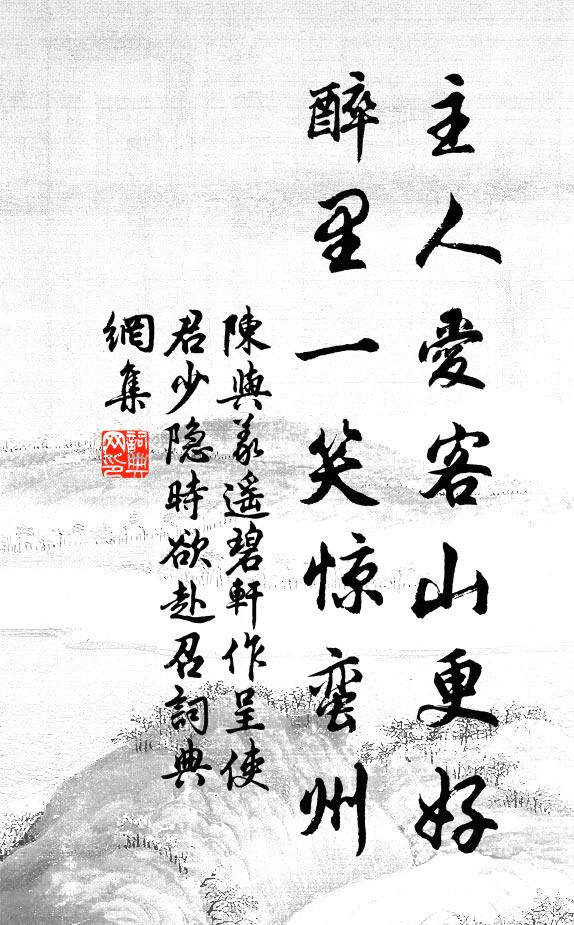 主人愛客山更好
醉里一笑惊蛮州
陳與義遥碧軒作呈使
君少隐時欲赴召詞典
網集
詞典網印